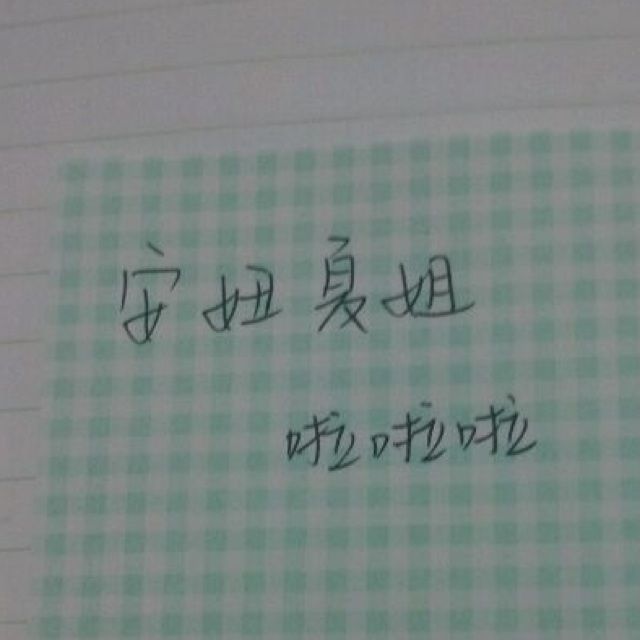 安妞夏姐
啦啦啦